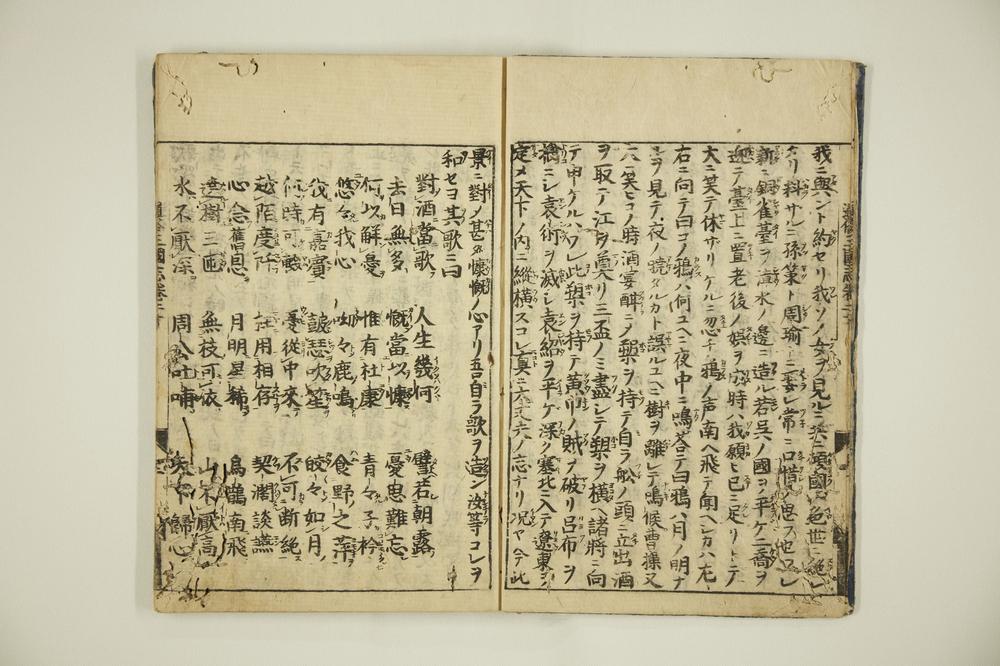 我ニ與ント約セリ我ソノ女ヲ見ルニ共ニ傾國ノ色世ニ絶レ
タリ料サルニ孫策ト周瑜トニ娶レ常ニ口惜ク思ス也ワレ
新ニ銅雀臺ヲ漳水ノ邊ニ造ル若呉ノ國ヲ平ケ二喬ヲ
迎テ臺上ニ置老後ノ娯ヲ 時ハ我願ヒ已ニ足リトテ
大ニ笑テ休ザリケルニ忽チ鴉ノ声南ヘ飛テ聞ヘシカハ左
右ニ向テ曰コノ鴉ハ何ユヘニ夜中ニ鳴答テ曰鴉ハ月ノ明ナ
ルヲ見テ夜ノ曉タルカト誤ルユヘニ樹ヲ離レテ鳴候曹操又
大ニ笑モノ時酒宴酣ニノ槊ヲ持テ自ラ舩ノ頭ニ立出酒
ヲ取テ江ヲ奠リ三盃ノミ盡シテ槊ヲ横ヘ諸將ニ向
テ申ケルハワレ此槊ヲ持テ黄巾ノ賊ヲ破リ呂布ヲ
擒ニシ袁術ヲ滅シ袁紹ヲ平ケ深ク塞北ニ入テ遼東ヲ
定メ天下ノ内ニ縱横スコレ真ニ大丈夫ノ志ナリ况ヤ今此
景ニ對ノ甚タ慷慨ノ心アリ吾自ラ歌ヲ造ン汝等コレヲ
和セヨ其歌ニ曰
對酒當歌 人生幾何 譬若朝露
去日無多 慨當以慷 憂思難忘
何以解憂 惟有杜康 青々子衿
悠々我心 呦々鹿鳴 食野之苹
我有嘉賓 皷瑟吹笙 皎々如月
何時可輟 憂從中來 不可断絶
越陌度阡 枉用相存 契濶談讌
心念舊恩 月明星稀 烏鵲南飛
遶樹三匝 無枝可依 山不厭高
水不厭深 周公吐哺 天下歸心